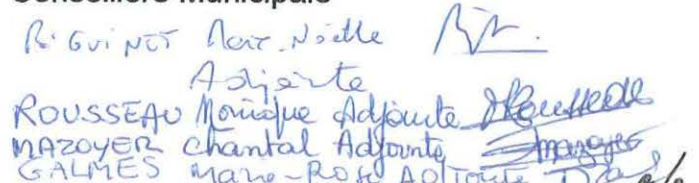 Conseillers Municipaux
BIGUINET Marie-Noëlle
Adjointe
ROUSSEAU Monique Adjointe Rousseau
MAZOYER Chantal Adjointe Mazoyer
GALMES Marie-Rose Adjointe